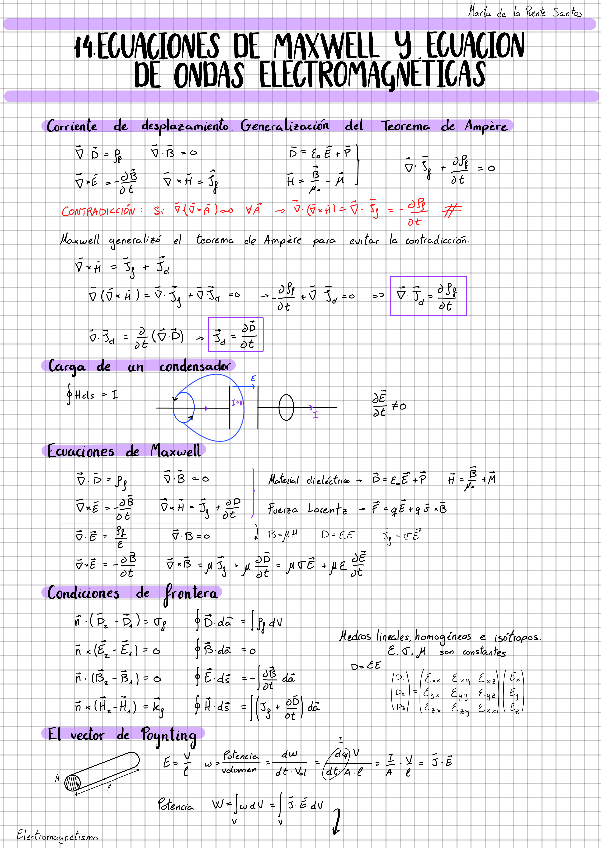 Marta de la Puente Santos
14. ECUACIONES DE MAXWELL Y ECUACION
DE ONDAS ELECTROMAGNÉTICAS
Corriente de desplazamiento. Generalización del Teorema de Ampère
∇⃗·D⃗ = ρf   ∇⃗·B⃗ = 0   D⃗ = ε₀E⃗ + P⃗
∇⃗×E⃗ = -∂B⃗/∂t   ∇⃗×H⃗ = J⃗f   H⃗ = B⃗/μ₀ - M⃗   ∇⃗·J⃗f + ∂ρf/∂t = 0
CONTRADICCIÓN: Si ∇⃗(∇⃗×A⃗)=0 ∀A⃗ → ∇⃗·(∇⃗×H⃗) = ∇⃗·J⃗f = -∂ρf/∂t #
Maxwell generalizó el teorema de Ampère para evitar la contradicción.
∇⃗×H⃗ = J⃗f + J⃗d
∇⃗(∇⃗×H⃗) = ∇⃗·J⃗f + ∇⃗·J⃗d = 0 → -∂ρf/∂t + ∇⃗·J⃗d = 0 ⇒ ∇⃗·J⃗d = ∂ρf/∂t
∇⃗·J⃗d = ∂/∂t (∇⃗·D⃗) → J⃗d = ∂D⃗/∂t
Carga de un condensador
∮Hds = I   I=0   E   I   ∂E⃗/∂t ≠ 0
Ecuaciones de Maxwell
∇⃗·D⃗ = ρf   ∇⃗·B⃗ = 0   Material dieléctrico → D⃗ = ε₀E⃗ + P⃗   H⃗ = B⃗/μ₀ + M⃗
∇⃗×E⃗ = -∂B⃗/∂t   ∇⃗×H⃗ = J⃗f + ∂D/∂t   Fuerza Lorentz → F⃗ = qE⃗ + qv⃗×B⃗
∇⃗·E⃗ = ρf/ε   ∇⃗·B = 0   ↓ B=μH   D=εE   Jf = σE⃗
∇⃗×E⃗ = -∂B⃗/∂t   ∇⃗×B⃗ = μJ⃗f + μ ∂D⃗/∂t = μσE⃗ + με ∂E⃗/∂t
Condiciones de frontera
n⃗·(D⃗₂ - D⃗₁) = σf   ∮D⃗·da⃗ = ∫ρf dV
n⃗×(E⃗₂ - E⃗₁) = 0   ∮B⃗·da⃗ = 0   Medros lineales, homogéneos e isótropos.
n⃗·(B⃗₂ - B⃗₁) = 0   ∮E⃗·ds⃗ = -∫∂B⃗/∂t da⃗   ε, σ, μ son constantes
n⃗×(H⃗₂ - H⃗₁) = k⃗f   ∮H⃗·ds⃗ = ∫(Jf + ∂D⃗/∂t) da⃗   D=εE
El vector de Poynting
E = V/l   w = Potencia/volumen = dw/(dt·Vol) = (dq)V/((dt)A·l) = I/A · V/l = J⃗·E⃗
Potencia   W = ∫w dV = ∫J⃗·E⃗ dV
Electromagnetismo